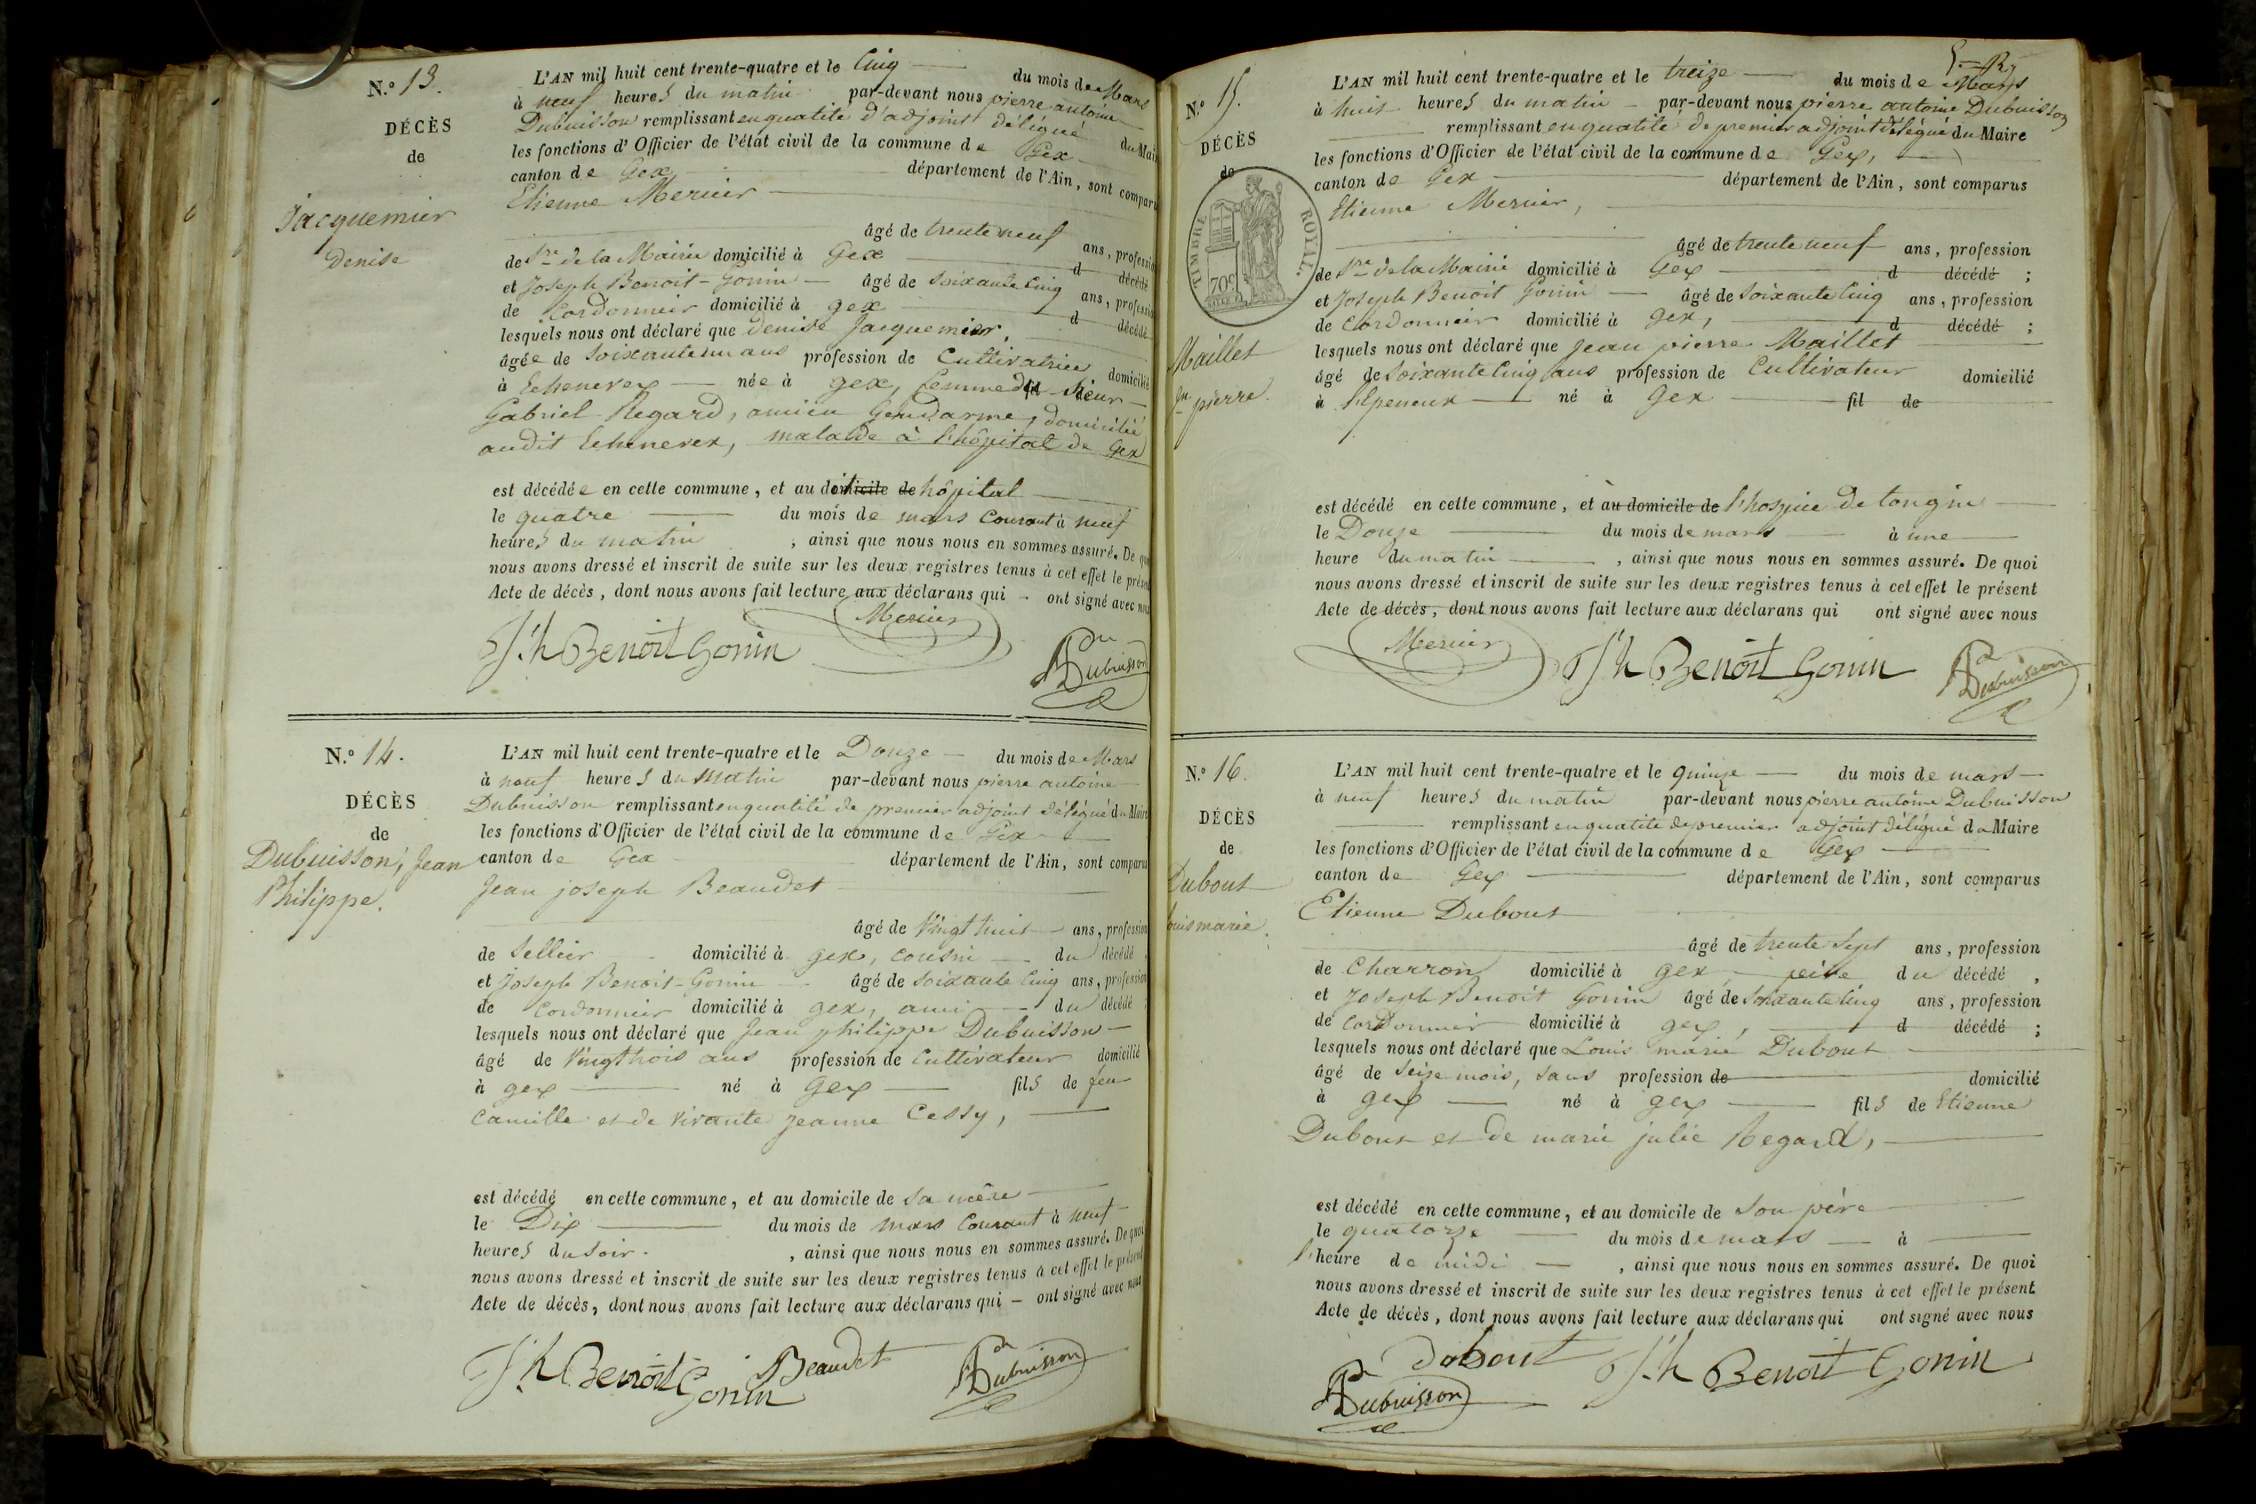 N.o 13.
DÉCÈS
de
Jacquemier
Denise
L'AN mil huit cent trente-quatre et le Cinq du mois de Mars
à neuf heures du matin par-devant nous pierre antoine
Dubuisson remplissant en qualité d'adjoint délégué du Maire
les fonctions d'Officier de l'état civil de la commune de Gex
canton de Gex département de l'Ain, sont comparus
Etienne Mercier
âgé de trente neuf ans, profession
de Sre de la Mairie domicilié à Gex d décédé
et Joseph Benoit-Gonin âgé de soixante cinq ans, profession
de Cordonnier domicilié à gex d décédé
lesquels nous ont déclaré que denise Jacquemier,
âgée de soixante un ans profession de Cultivatrice domicilié
à Echenevex née à gex, femme du sieur
Gabriel Regard, ancien Gendarme, domicilié
audit Echenevex, malade à l'hôpital de Gex
est décédée en cette commune, et au domicile de hôpital
le quatre du mois de mars Courant à neuf
heures du matin, ainsi que nous nous en sommes assuré. De quoi
nous avons dressé et inscrit de suite sur les deux registres tenus à cet effet le présent
Acte de décès, dont nous avons fait lecture aux déclarans qui - ont signé avec nous
Mercier
Jh Benoit Gonin
Dubuisson
N.o 14.
DÉCÈS
de
Dubuisson, Jean
Philippe.
L'AN mil huit cent trente-quatre et le Douze du mois de Mars
à neuf heures du matin par-devant nous pierre antoine
Dubuisson remplissant en qualité de premier adjoint délégué du Maire
les fonctions d'Officier de l'état civil de la commune de Gex
canton de Gex département de l'Ain, sont comparus
Jean joseph Beaudet
âgé de Vingt huit ans, profession
de Sellier domicilié à gex, cousin du décédé
et joseph Benoit-Gonin âgé de soixante cinq ans, profession
de Cordonnier domicilié à gex, ami du décédé
lesquels nous ont déclaré que Jean philippe Dubuisson
âgé de Vingt trois ans profession de Cultivateur domicilié
à gex né à Gex fils de feu
Camille et de vivante Jeanne Cessy,
est décédé en cette commune, et au domicile de sa mère
le Dix du mois de mars Courant à neuf
heures du soir., ainsi que nous nous en sommes assuré. De quoi
nous avons dressé et inscrit de suite sur les deux registres tenus à cet effet le présent
Acte de décès, dont nous avons fait lecture aux déclarans qui - ont signé avec nous
Jh Benoit Gonin Beaudet Dubuisson
N.o 15.
DÉCÈS
de
TIMBRE ROYAL.
70c
Maillet
Jn pierre.
L'AN mil huit cent trente-quatre et le treize du mois de Mars
à huit heures du matin par-devant nous pierre antoine Dubuisson
remplissant en qualité de premier adjoint délégué du Maire
les fonctions d'Officier de l'état civil de la commune de Gex,
canton de Gex département de l'Ain, sont comparus
Etienne Mercier,
âgé de trente neuf ans, profession
de Sre de la Mairie domicilié à Gex d décédé ;
et Joseph Benoit Gonin âgé de soixante cinq ans, profession
de Cordonnier domicilié à gex, d décédé ;
lesquels nous ont déclaré que Jean pierre Maillet
âgé de soixante cinq ans profession de Cultivateur domicilié
à né à Gex fil de
est décédé en cette commune, et au domicile de l'hospice de tougin
le Douze du mois de mars à une
heure du matin, ainsi que nous nous en sommes assuré. De quoi
nous avons dressé et inscrit de suite sur les deux registres tenus à cet effet le présent
Acte de décès, dont nous avons fait lecture aux déclarans qui ont signé avec nous
Mercier Jh Benoit Gonin Dubuisson
N.o 16.
DÉCÈS
de
Dubout
ouis marie.
L'AN mil huit cent trente-quatre et le quinze du mois de mars
à neuf heures du matin par-devant nous pierre antoine Dubuisson
remplissant en qualité de premier adjoint délégué du Maire
les fonctions d'Officier de l'état civil de la commune de Gex
canton de Gex département de l'Ain, sont comparus
Etienne Dubout
âgé de trente sept ans, profession
de Charron domicilié à gex, père du décédé,
et Joseph Benoit Gonin âgé de soixante cinq ans, profession
de Cordonnier domicilié à gex, d décédé ;
lesquels nous ont déclaré que Louis marie Dubout
âgé de seize mois, sans profession de domicilié
à gex né à gex fils de Etienne
Dubout et de marie julie Regard,
est décédé en cette commune, et au domicile de son père
le quatorze du mois de mars à
l'heure de midi, ainsi que nous nous en sommes assuré. De quoi
nous avons dressé et inscrit de suite sur les deux registres tenus à cet effet le présent
Acte de décès, dont nous avons fait lecture aux déclarans qui ont signé avec nous
Dubout Jh Benoit Gonin
Dubuisson